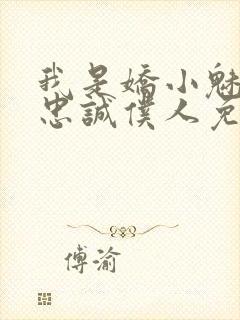 我是嬌小魅
忠誠僕人兔
傅渝